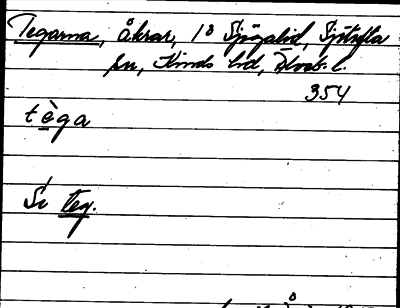 Tegarna, åkrar, 1⁰ Sjögalid, Sjötofta
sn, Kinds hd, Älvsb. l.
354
tèga
Se teg.